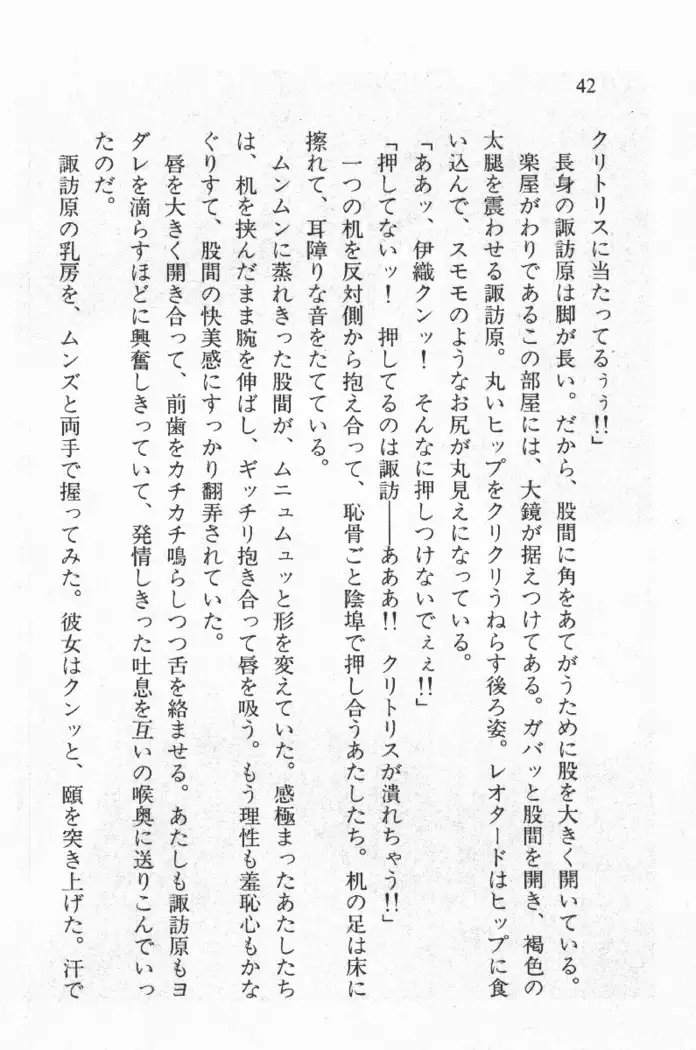 42
クリトリスに当たってるぅぅ!!」
長身の諏訪原は脚が長い。だから、股間に角をあてがうために股を大きく開いている。
楽屋がわりであるこの部屋には、大鏡が据えつけてある。ガバッと股間を開き、褐色の
太腿を震わせる諏訪原。丸いヒップをクリクリうねらす後ろ姿。レオタードはヒップに食
い込んで、スモモのようなお尻が丸見えになっている。
「ああッ、伊織クンッ! そんなに押しつけないでぇぇ!!」
「押してないッ! 押してるのは諏訪――あああ!! クリトリスが潰れちゃう!!」
一つの机を反対側から抱え合って、恥骨ごと陰埠で押し合うあたしたち。机の足は床に
擦れて、耳障りな音をたてている。
ムンムンに蒸れきった股間が、ムニュムュッと形を変えていた。感極まったあたしたち
は、机を挟んだまま腕を伸ばし、ギッチリ抱き合って唇を吸う。もう理性も羞恥心もかな
ぐりすて、股間の快美感にすっかり翻弄されていた。
唇を大きく開き合って、前歯をカチカチ鳴らしつつ舌を絡ませる。あたしも諏訪原もヨ
ダレを滴らすほどに興奮しきっていて、発情しきった吐息を互いの喉奥に送りこんでいっ
たのだ。
諏訪原の乳房を、ムンズと両手で握ってみた。彼女はクンッと、頤を突き上げた。汗で